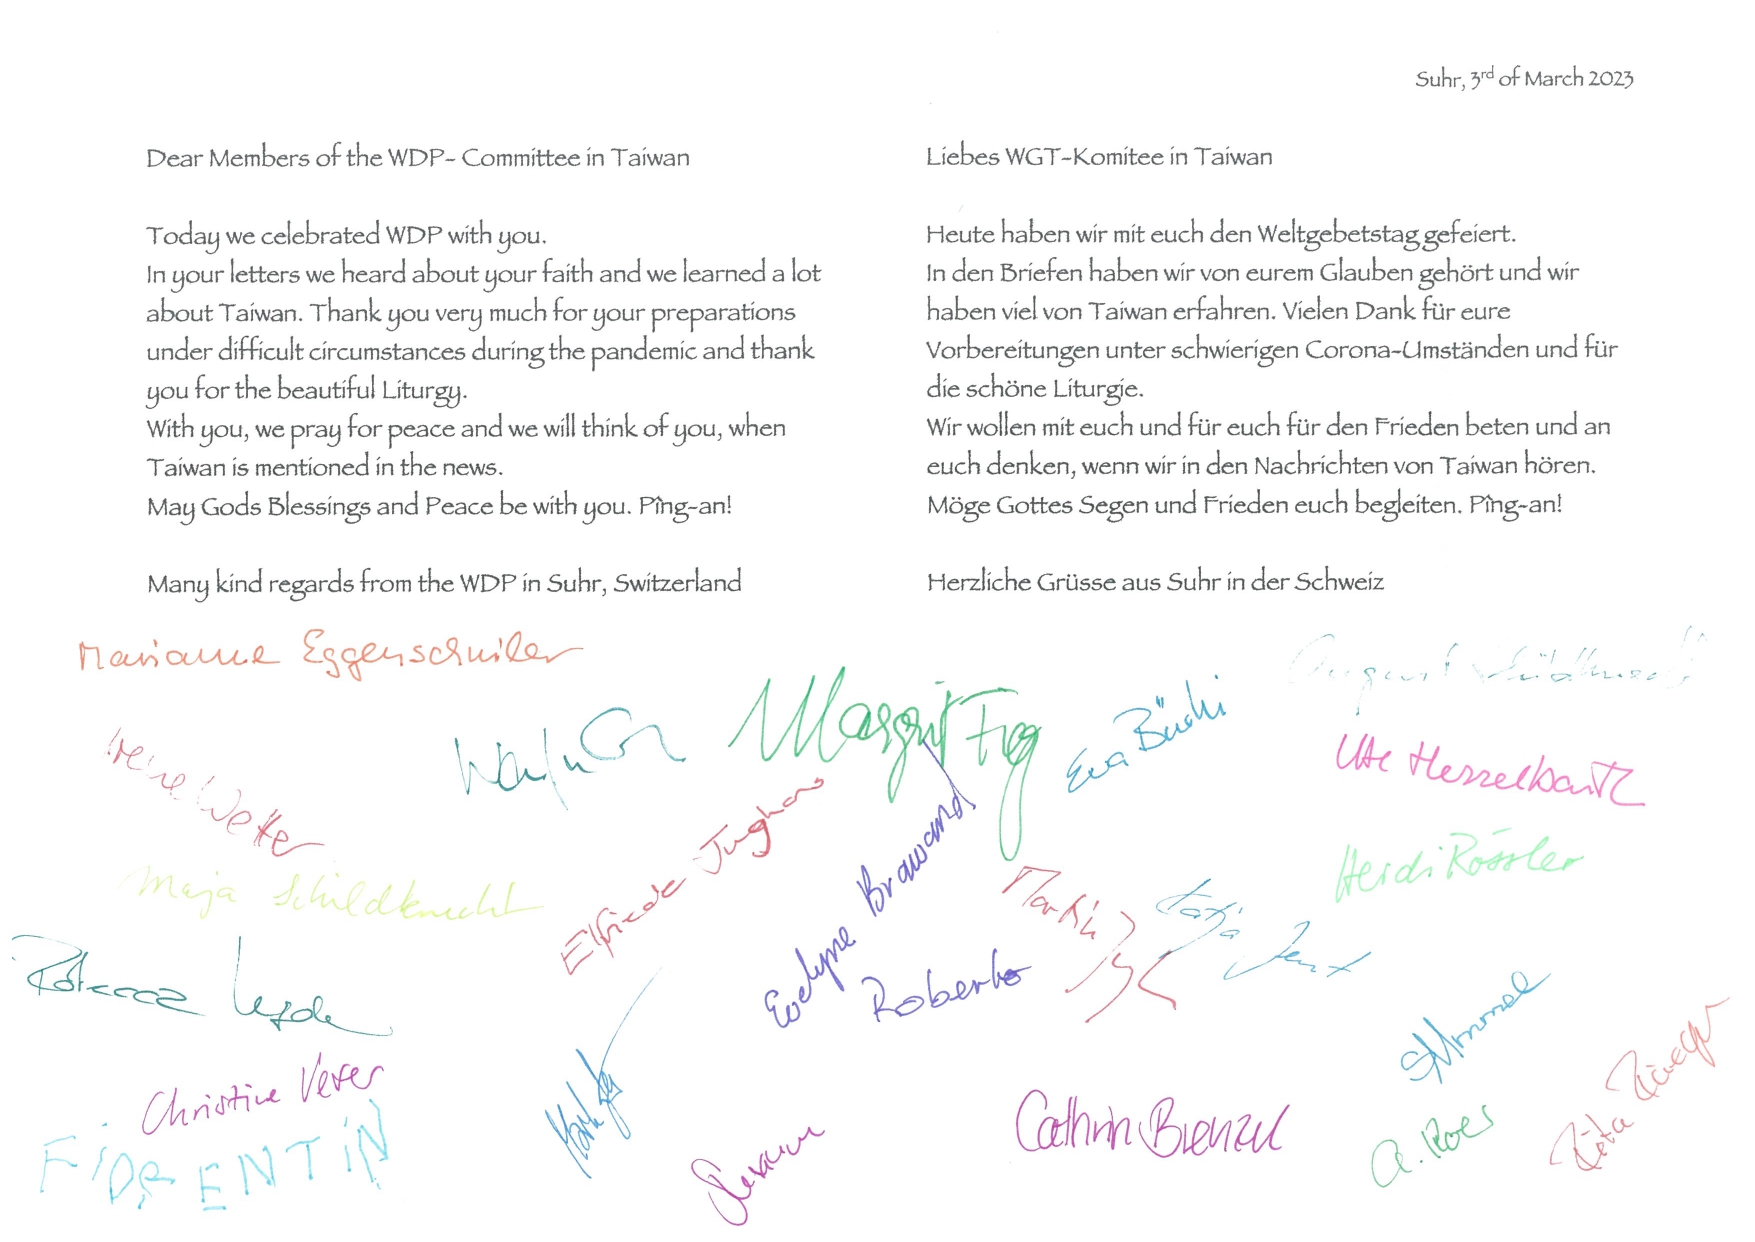 Suhr, 3rd of March 2023
Dear Members of the WDP- Committee in Taiwan
Today we celebrated WDP with you.
In your letters we heard about your faith and we learned a lot
about Taiwan. Thank you very much for your preparations
under difficult circumstances during the pandemic and thank
you for the beautiful Liturgy.
With you, we pray for peace and we will think of you, when
Taiwan is mentioned in the news.
May Gods Blessings and Peace be with you. Pîng-an!
Many kind regards from the WDP in Suhr, Switzerland
Liebes WGT-Komitee in Taiwan
Heute haben wir mit euch den Weltgebetstag gefeiert.
In den Briefen haben wir von eurem Glauben gehört und wir
haben viel von Taiwan erfahren. Vielen Dank für eure
Vorbereitungen unter schwierigen Corona-Umständen und für
die schöne Liturgie.
Wir wollen mit euch und für euch für den Frieden beten und an
euch denken, wenn wir in den Nachrichten von Taiwan hören.
Möge Gottes Segen und Frieden euch begleiten. Pîng-an!
Herzliche Grüsse aus Suhr in der Schweiz
Marianne Eggenschwiler
August
Margrit
Eva Büchi
Irene Wetter
Ute Hesselbarth
Elfriede Junghans
Evelyne Brawand
Heidi Rössler
Maja Schildknecht
Martin
Katja Jent
Roberto
Rebecca
Christine
FIORENTIN
Cathrin Bienzel
A. Roes
Rita